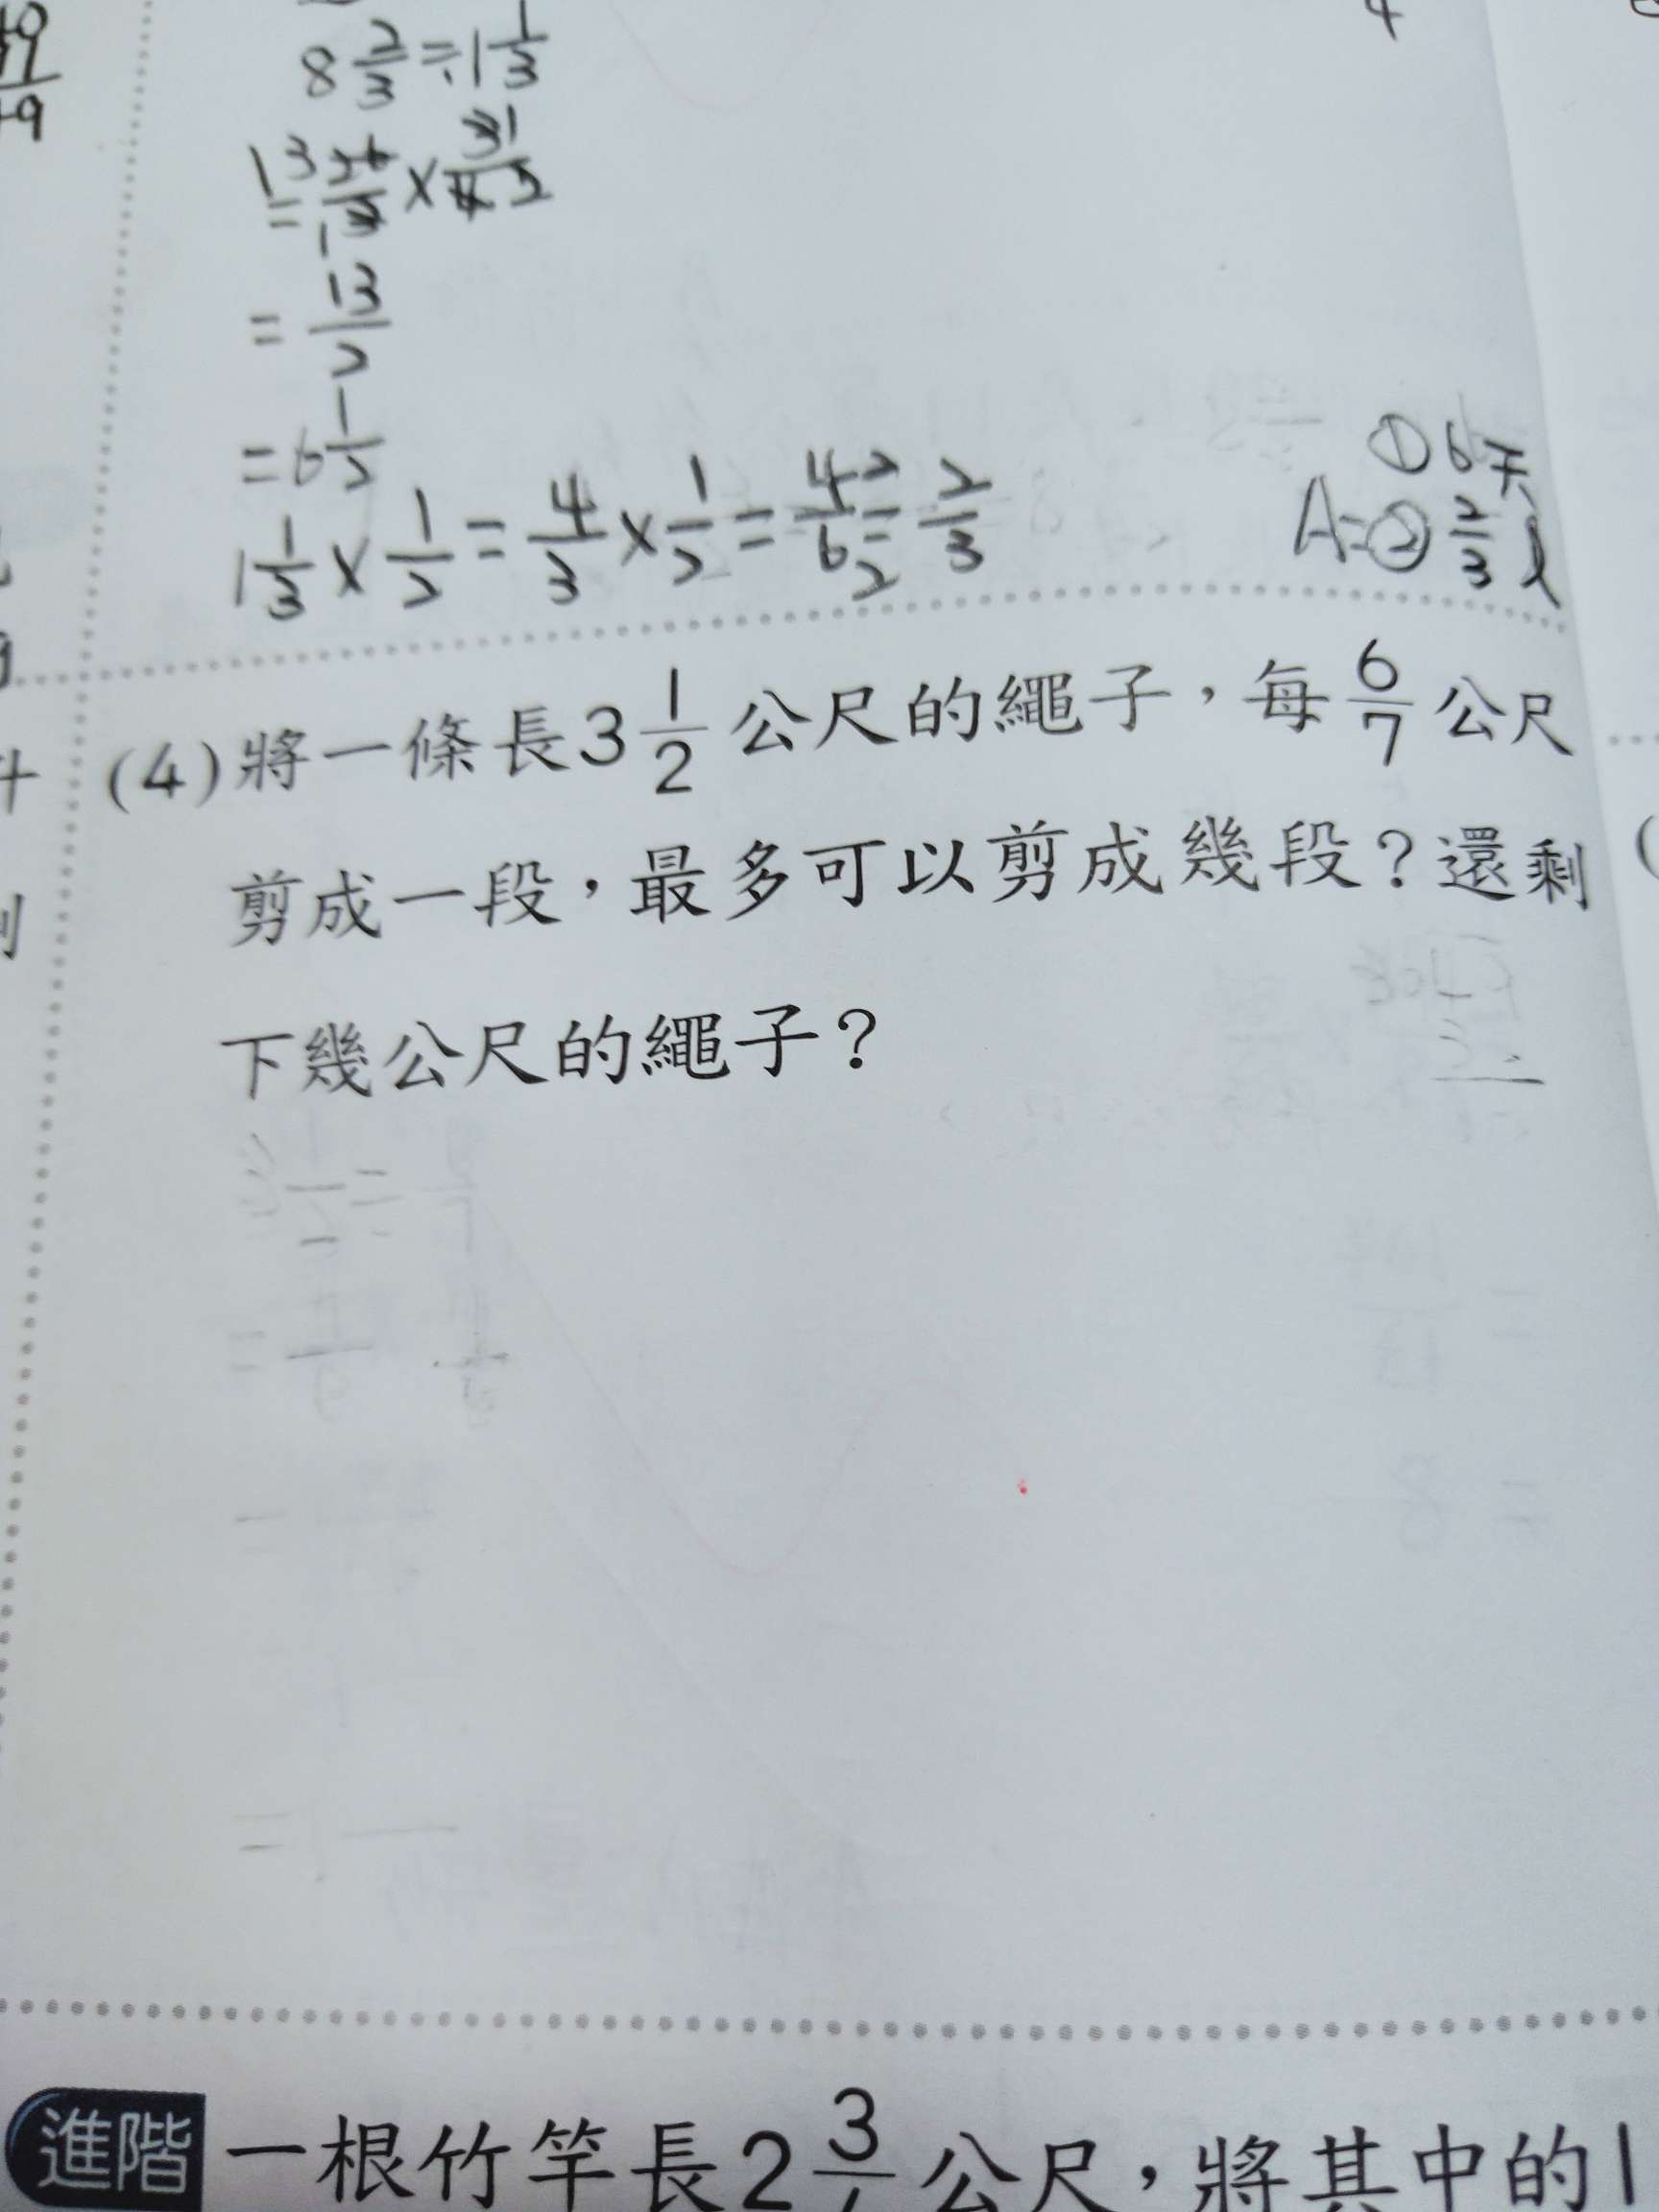 8 2/3 ÷ 1 1/3
= 26/3 × 3/4
= 13/2
= 6 1/2
1 1/3 × 1/2 = 4/3 × 1/2 = 4/6 = 2/3
① 6天
A=② 2/3 l
(4)將一條長3 1/2 公尺的繩子，每 6/7 公尺
剪成一段，最多可以剪成幾段？還剩
下幾公尺的繩子？
進階 一根竹竿長2 3/ 公尺，將其中的1